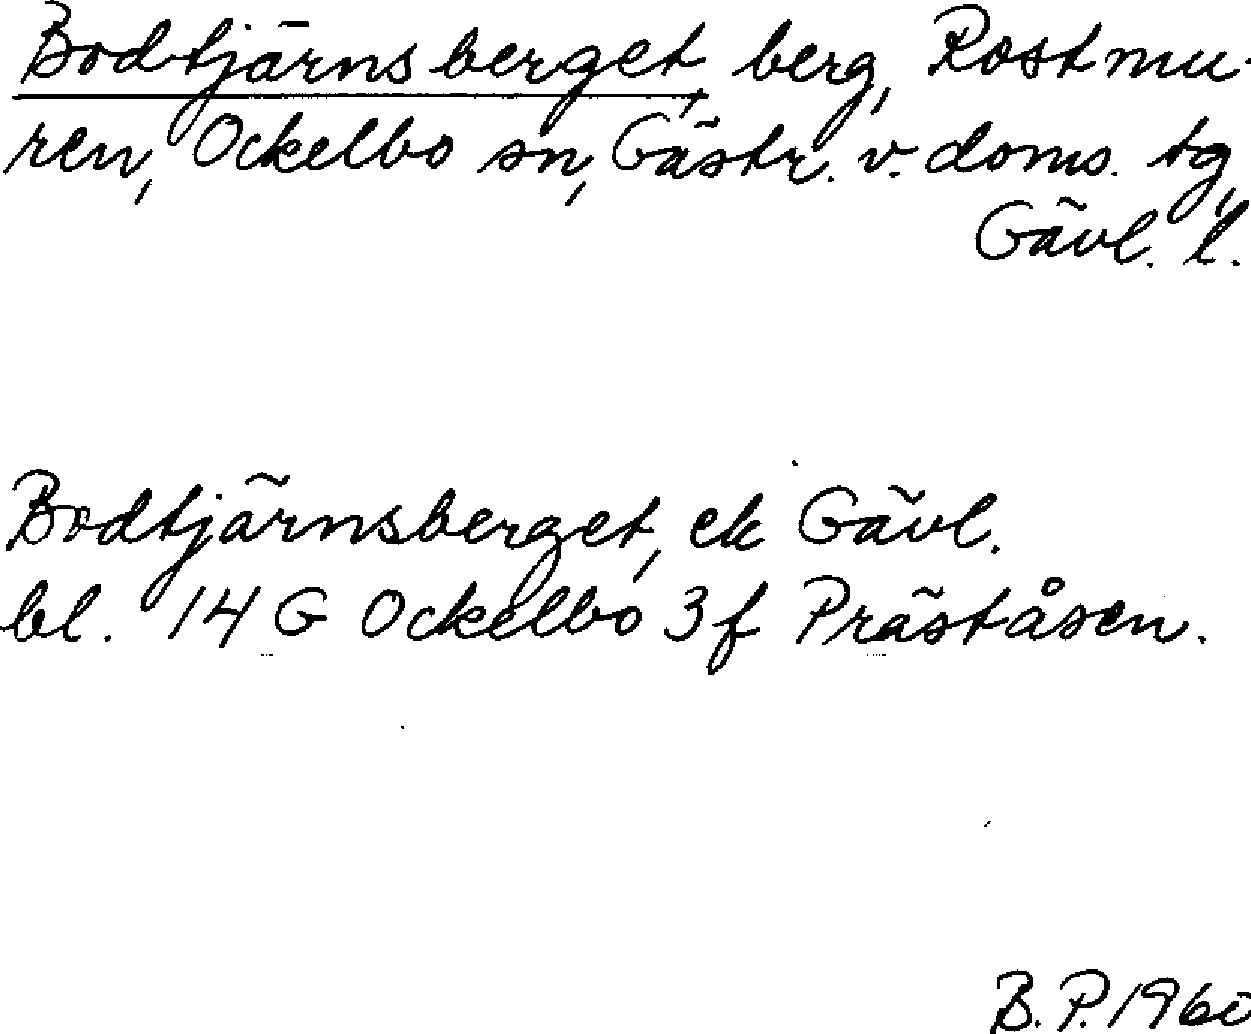 Bodtjärnsberget, berg, Rostmu-
ren, Ockelbo sn, Gästr. v. doms. tg,
Gävl. l.
Bodtjärnsberget, ek Gävl.
bl. 14 G Ockelbo 3f Präståsen.
B. P. 1960